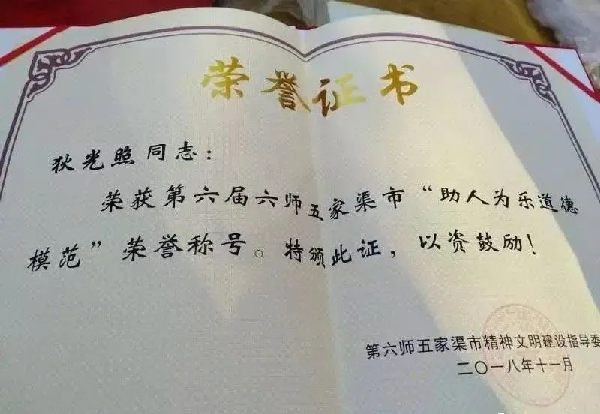 荣誉证书
狄光照同志：
荣获第六届六师五家渠市“助人为乐道德
模范”荣誉称号。特颁此证，以资鼓励！
第六师五家渠市精神文明建设指导委
二〇一八年十一月